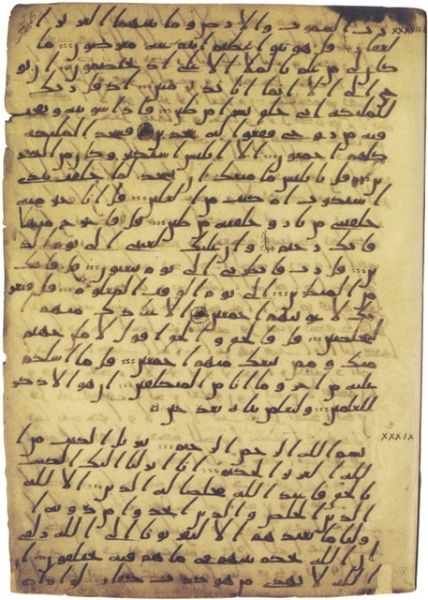 رب السموت والارض وما بينهما العزيز ا XXXVIII
لغفر قل هو نبوا عظيم انتم عنه معرضون ما
كان لي من علم بالملا الاعلى اذ يختصمون ان يو
حى الي الا انما انا نذير مبين اذ قال ربك
للملئكة اني خلق بشرا من طين فاذا سويته ونفخت
فيه من روحي فقعوا له سجدين فسجد الملئكة
كلهم اجمعون الا ابليس استكبر وكان من الكفر
ين قال يابليس ما منعك ان تسجد لما خلقت بيدي
استكبرت ام كنت من العلين قال انا خير منه
خلقتني من نار وخلقته من طين قال فاخرج منها
فانك رجيم وان عليك لعنتي الى يوم الد
ين قال رب فانظرني الى يوم يبعثون قال فانك
من المنظرين الى يوم الوقت المعلوم قال فبعز
تك لاغوينهم اجمعين الا عبادك منهم ا
لمخلصين قال فالحق والحق اقول لاملن جهنم
منك وممن تبعك منهم اجمعين قل ما اسلكم
عليه من اجر وما انا من المتكلفين ان هو الا ذكر
للعلمين ولتعلمن نباه بعد حين
بسم الله الرحمن الرحيم تنزيل الكتب من ا XXXIX
لله العزيز الحكيم انا انزلنا اليك الكتب
بالحق فاعبد الله مخلصا له الدين الا لله
الدين الخالص والذين اتخذوا من دونه ا
وليا ما نعبدهم الا ليقربونا الى الله زلفى
ان الله يحكم بينهم في ما هم فيه يختلفون ان
الله لا يهدي من هو كذب كفار لو اراد